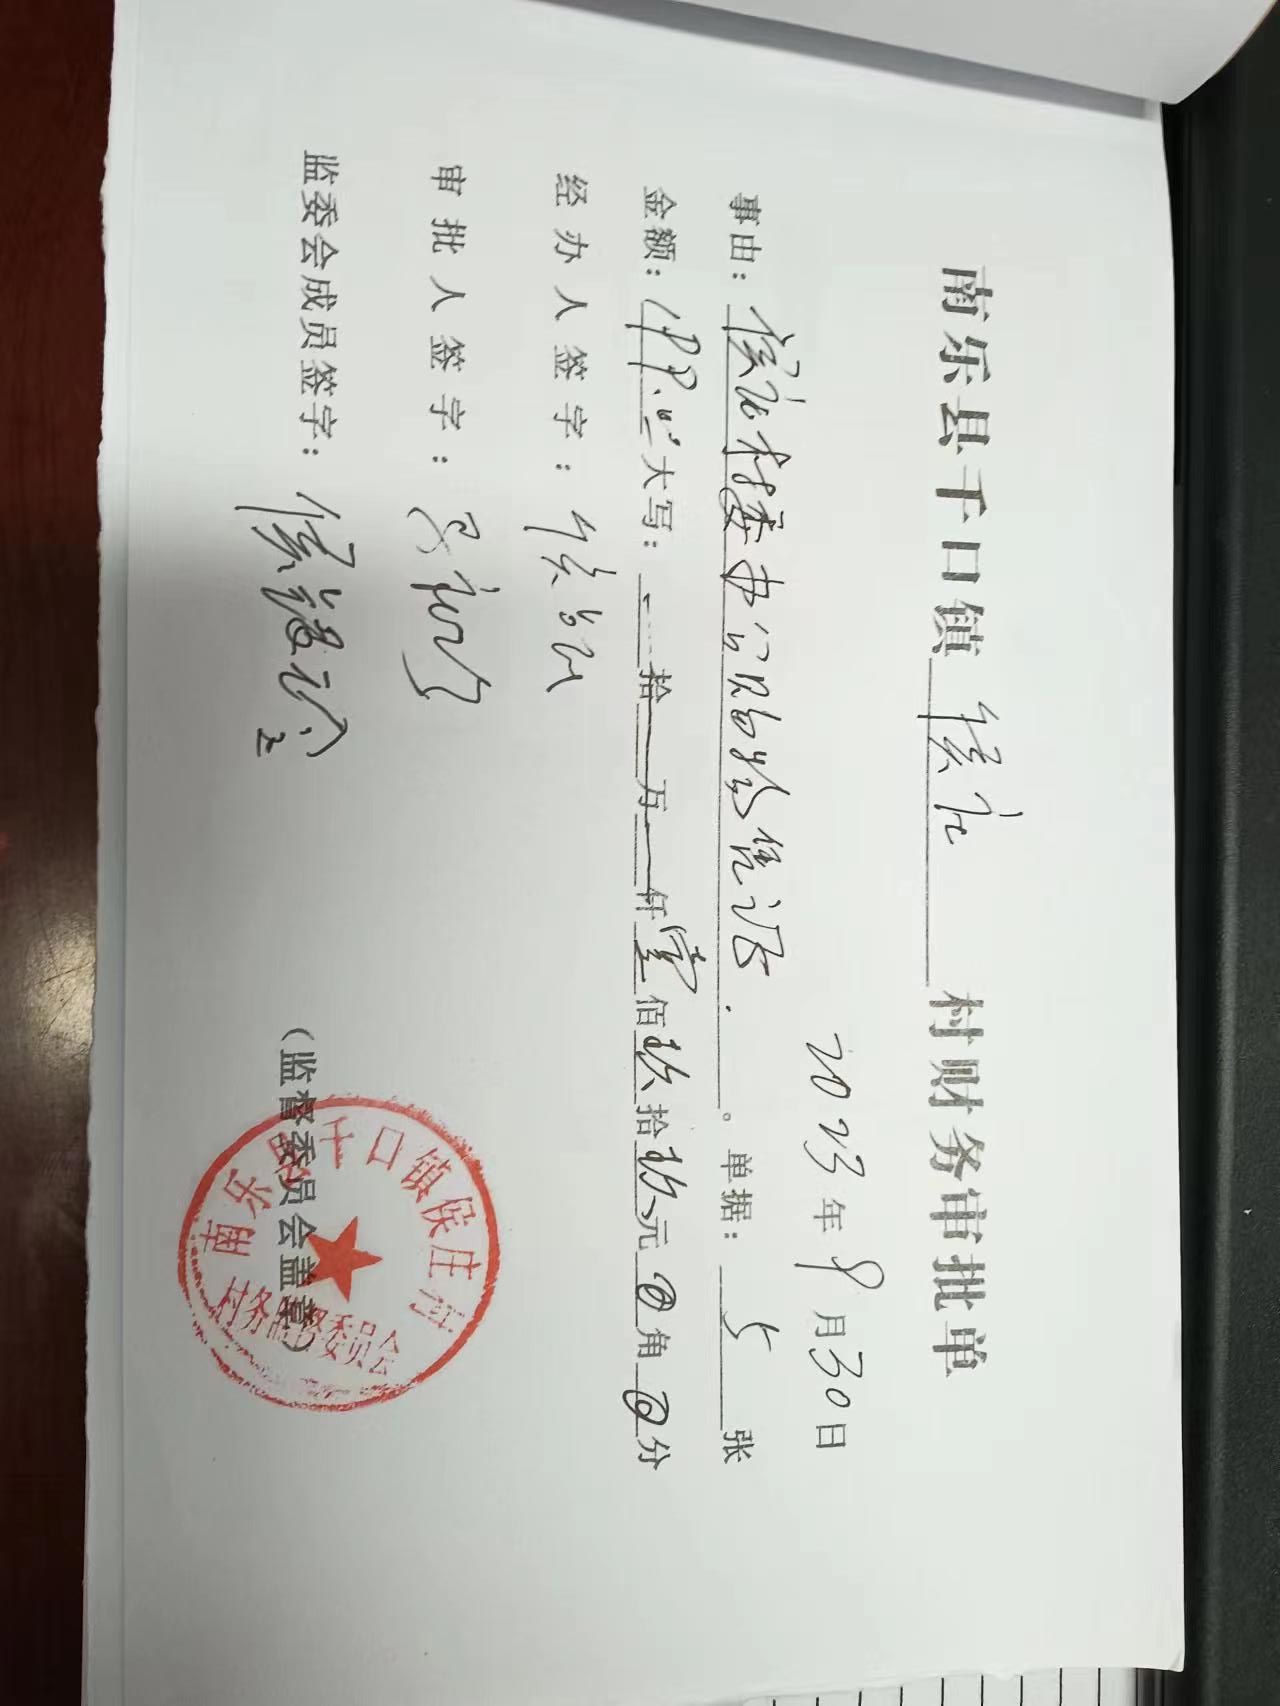 南乐县千口镇 侯庄 村财务审批单
2023年9月30日
事由：侯庄村委办公用 。单据：5张
金额：199.00大写：拾万仟壹佰玖拾玖元0角0分
经办人签字：侯
审批人签字：
监委会成员签字：侯
（监督委员会盖章）
南乐县千口镇侯庄村
村务监督委员会